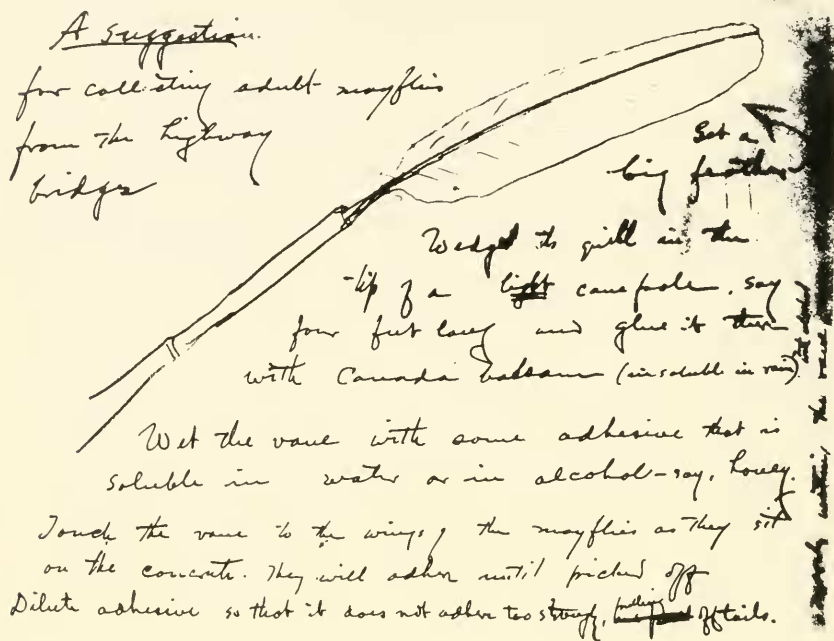 A suggestion.
for collecting adult mayflies
from the highway
bridges
Get a
big feather
Wedge its quill in the
tip of a light cane pole, say
four feet long and glue it there
with Canada balsam (insoluble in rain)
Wet the vane with some adhesive that is
soluble in water or in alcohol - say, honey.
Touch the vane to the wings of the mayflies as they sit
on the concrete. They will adhere until picked off
Dilute adhesive so that it does not adhere too strongly, pulling off tails.